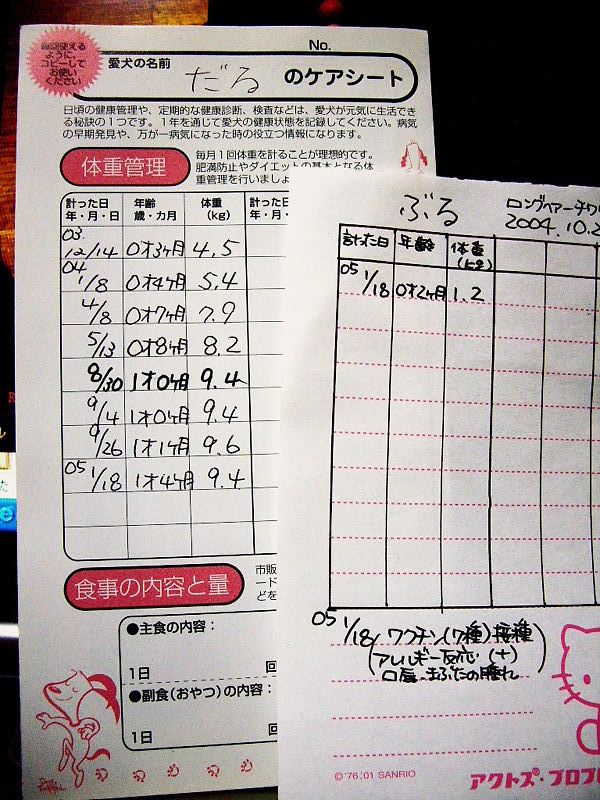 毎回使える
ように、
コピーして
お使い
ください
No.
愛犬の名前
だる のケアシート
日頃の健康管理や、定期的な健康診断、検査などは、愛犬が元気に生活でき
る秘訣の1つです。1年を通じて愛犬の健康状態を記録してください。病気
の早期発見や、万が一病気になった時の役立つ情報になります。
体重管理
毎月1回体重を計ることが理想的です。
肥満防止やダイエットの基本となる体
重管理を行いましょ
計った日 年齢 体重 計った日
年・月・日 歳・カ月 (kg) 年・月
03
12/14 0才3ヶ月 4.5
04
1/8 0才4ヶ月 5.4
4/8 0才7ヶ月 7.9
5/13 0才8ヶ月 8.2
8/30 1才0ヶ月 9.4
9/4 1才0ヶ月 9.4
9/26 1才1ヶ月 9.6
05 1/18 1才4ヶ月 9.4
食事の内容と量
市販
ード
どを
●主食の内容：
1日 回
●副食(おやつ)の内容：
1日 回
ぶる
ロングヘアーチワ
2004.10.2
計った日 年齢 体重
(キロ)
05 1/18 0才2ヶ月 1.2
05 1/18 ワクチン(7種)接種
(アレルギー反応 (+)
口唇、まぶたの腫れ)
©'76,'01 SANRIO
アクトズ・プロブ